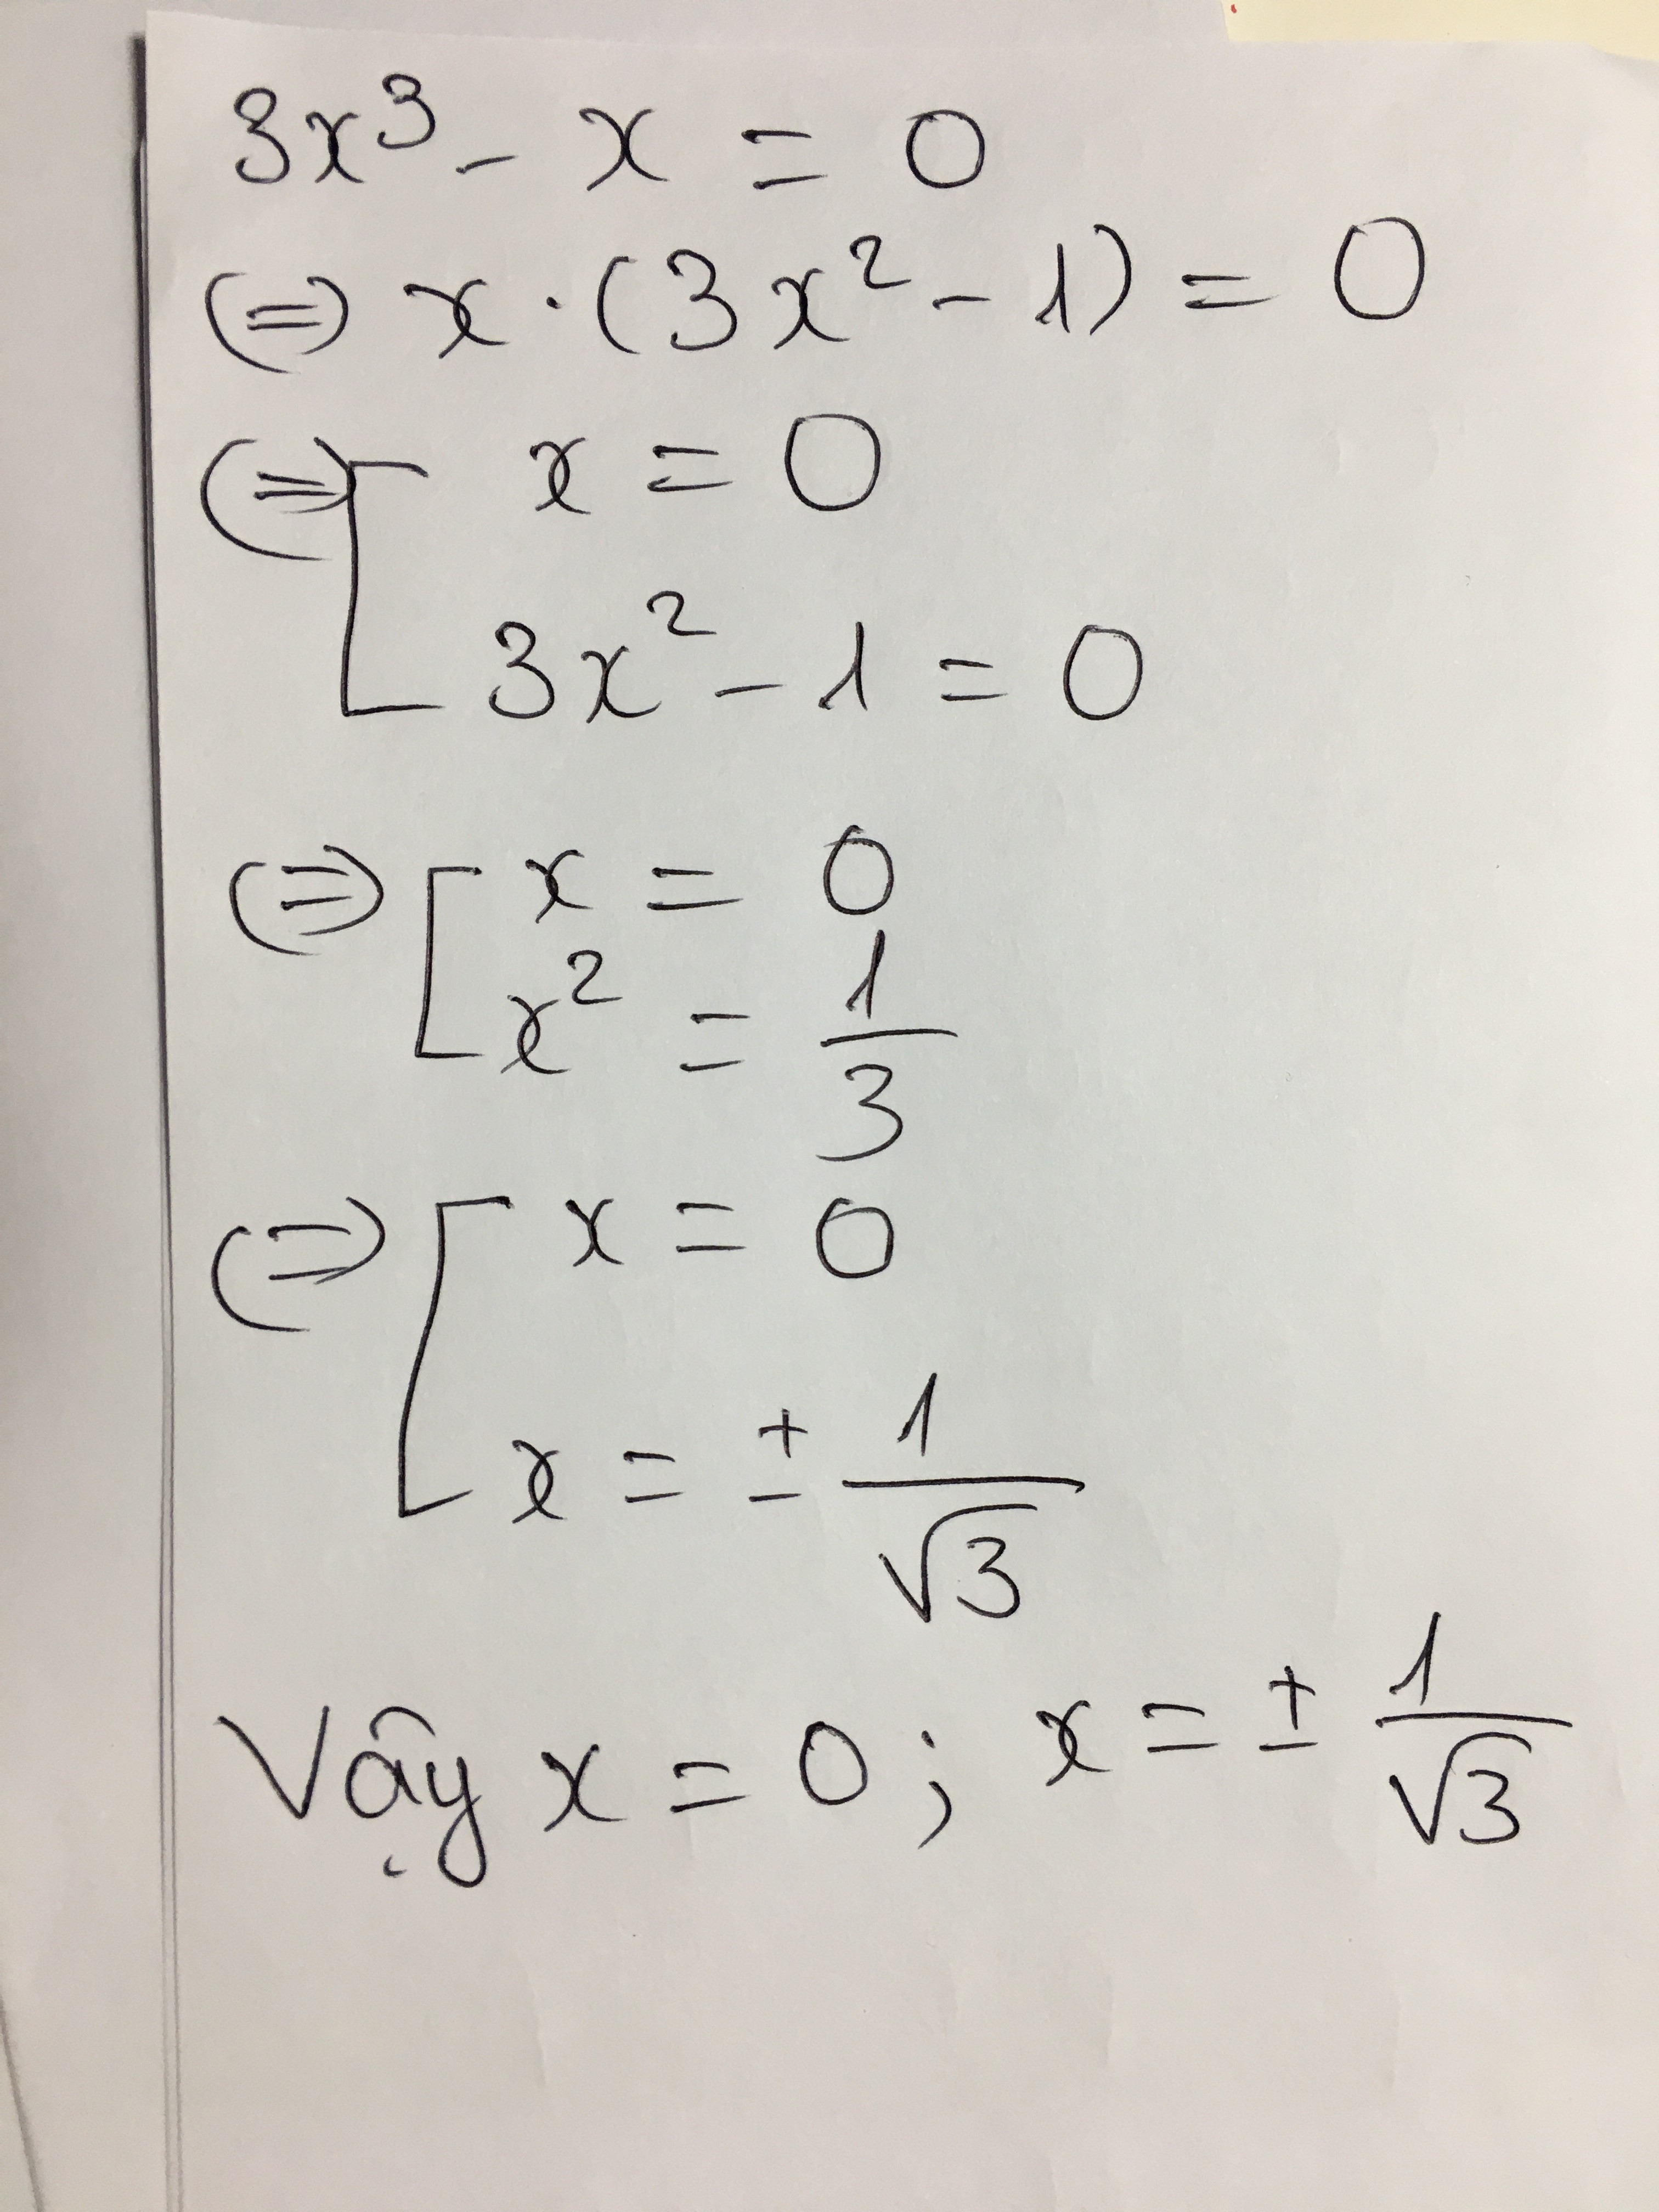 3x³ - x = 0
(=) x · (3x² - 1) = 0
(=) [ x = 0
3x² - 1 = 0
(=) [ x = 0
x² = 1/3
(=) [ x = 0
x = ± 1/√3
Vậy x = 0 ; x = ± 1/√3